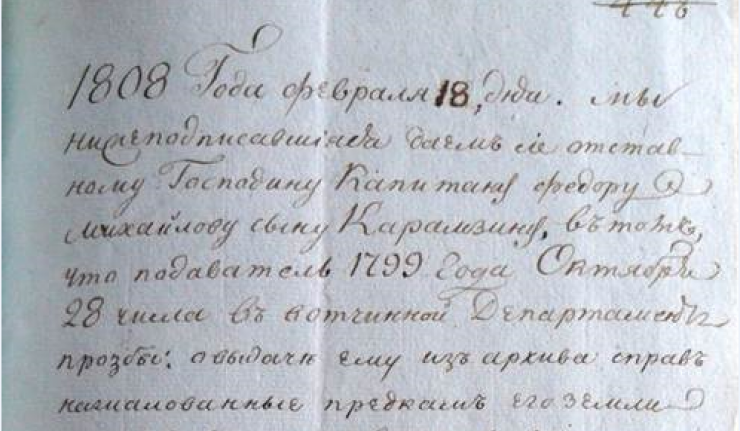 446
1808 Года февраля 18, дня. мы
нижеподписавшіяся даемъ сіе отстав-
ному Господину Капитану федору
Михайлову сыну Карамзину, въ томъ,
что подаватель 1799 Года Октября
28 числа въ вотчинной Департаментъ
прозбы: о выдаче ему изъ архива справъ
на жалованные предкамъ его земли